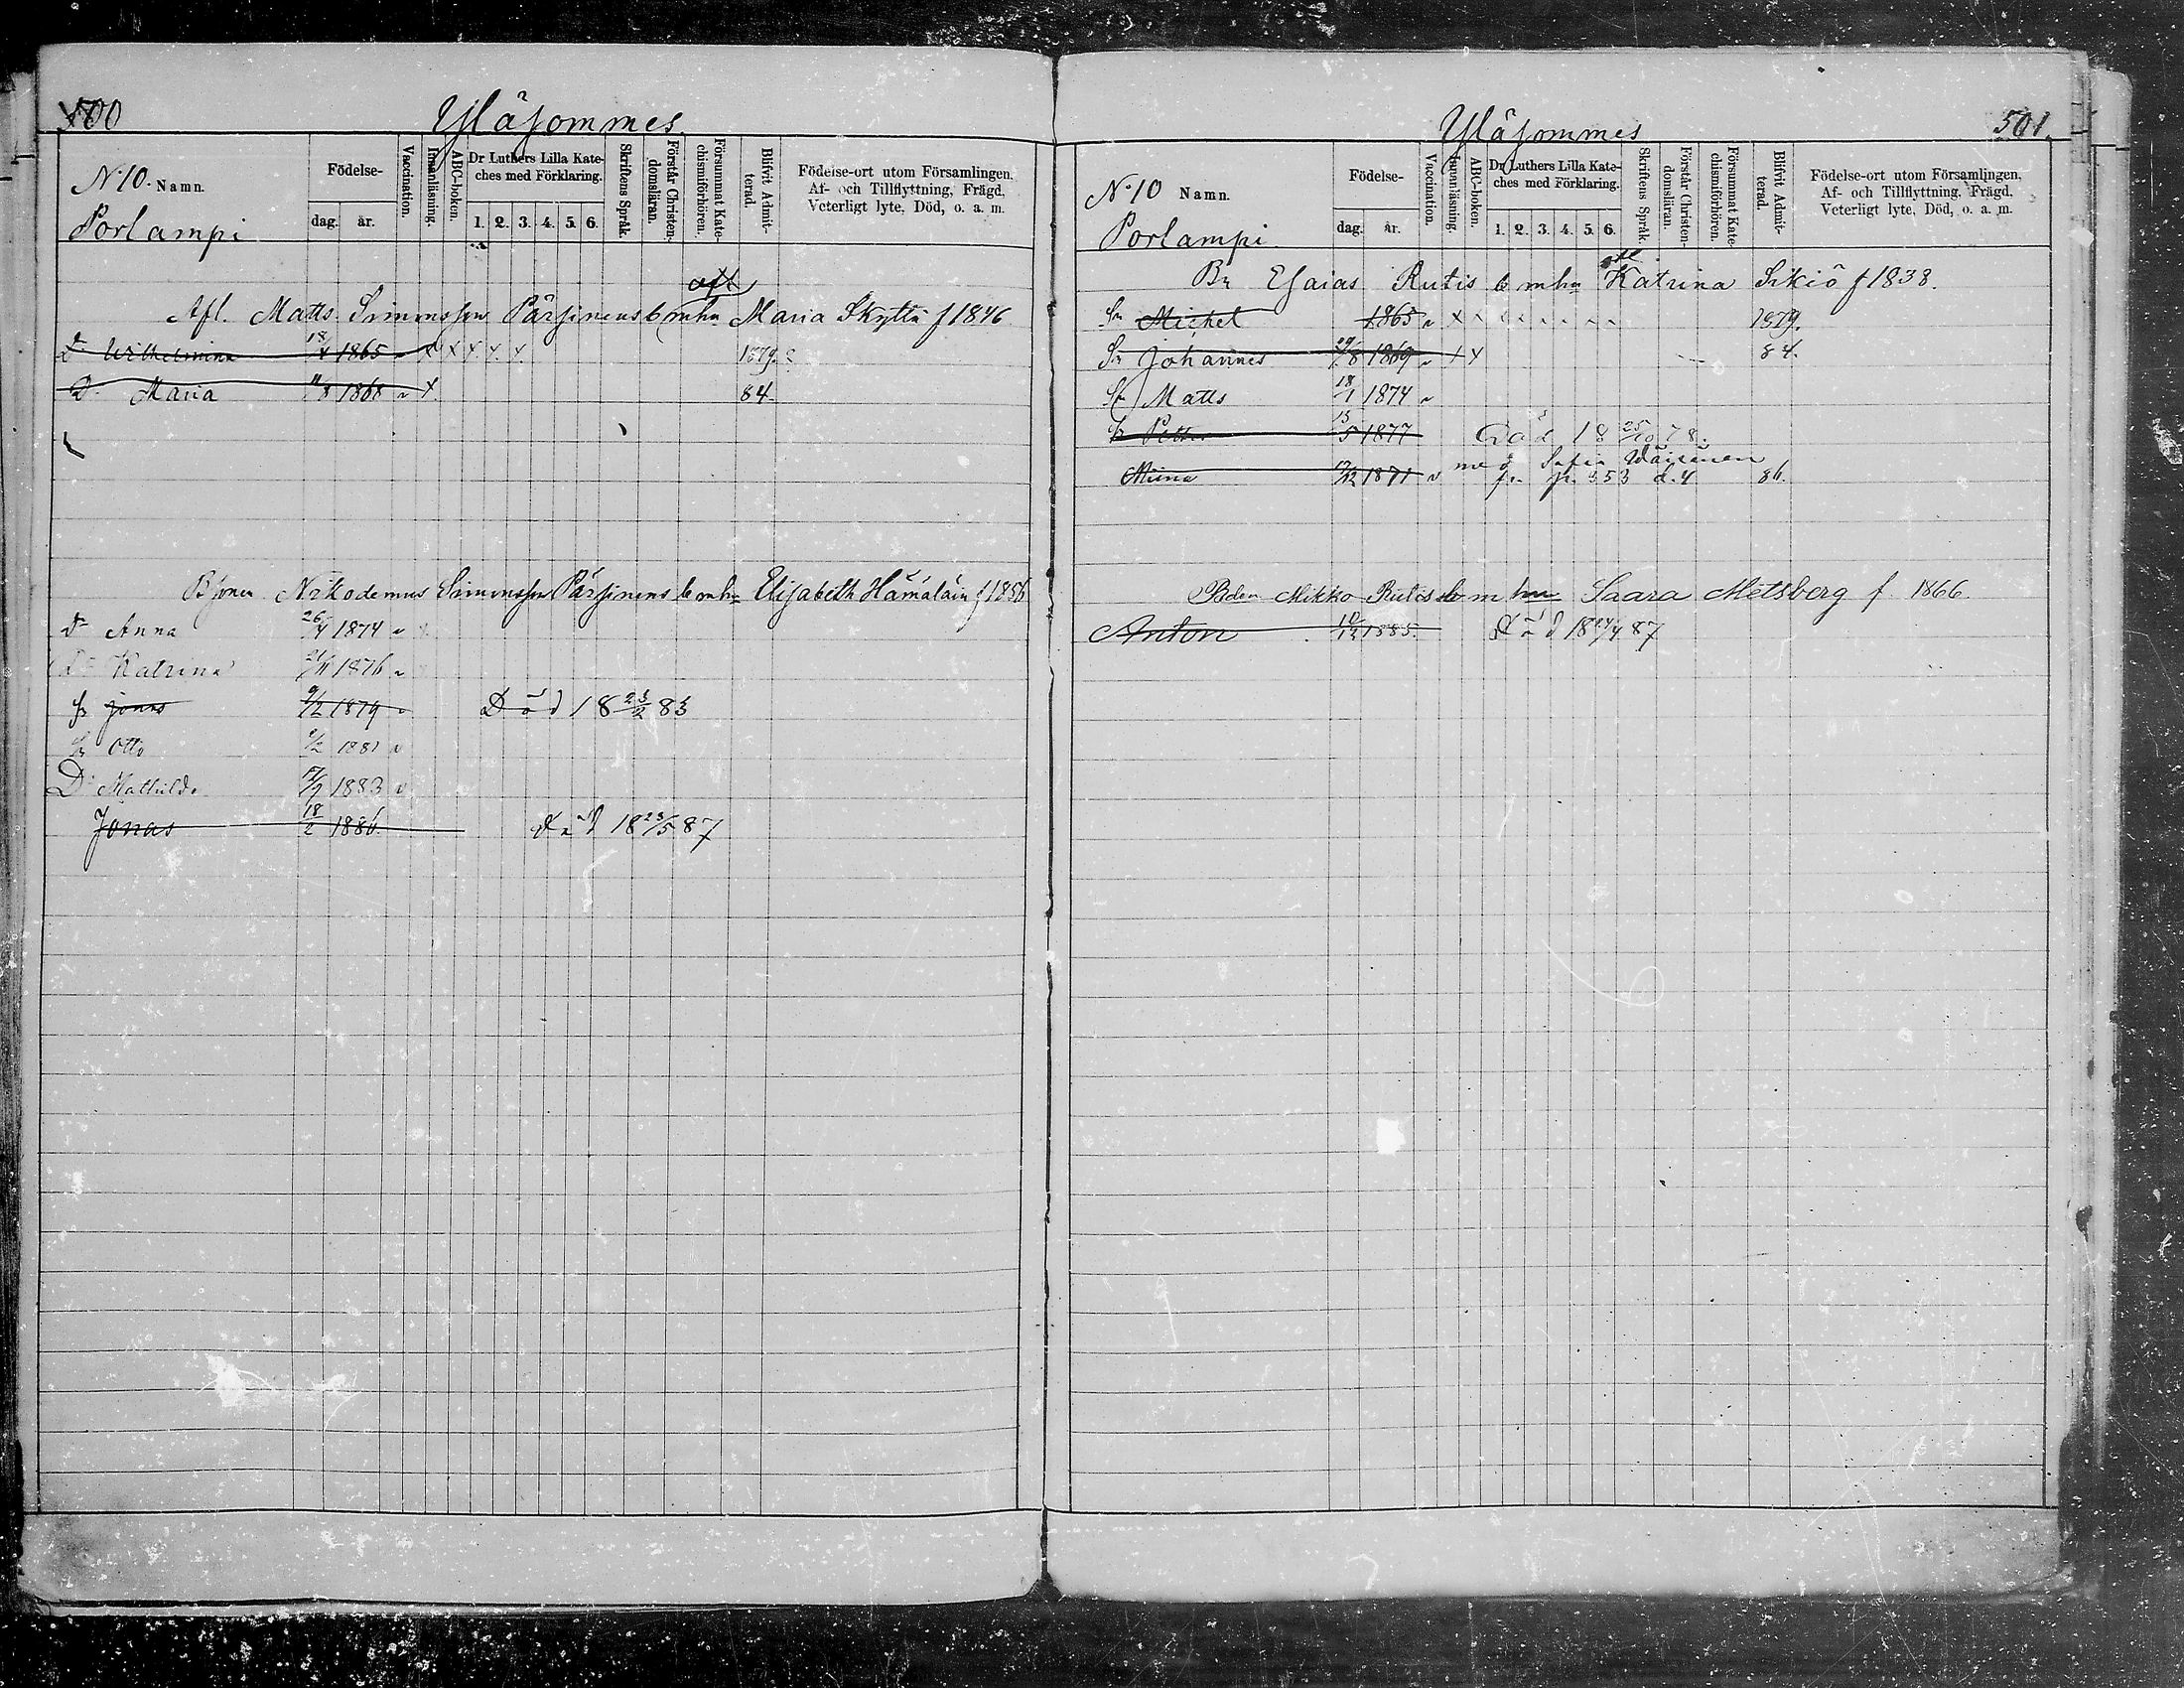 500
Yläsommes
N:10. Namn.
Porlampi
Födelse-
dag. år.
Vaccination.
Innanläsning.
ABC-boken.
Dr Luthers Lilla Kate-
ches med Förklaring.
1. 2. 3. 4. 5. 6.
Skriftens Språk.
Förstår Christen-
domsläran.
Försummat Kate-
chismiförhören.
Blifvit Admit-
terad.
Födelse-ort utom Församlingen,
Af- och Tillflyttning, Frägd,
Veterligt lyte, Död, o. a. m.
Afl. Matts Simonsson Pärsinens b m hu Maria Skyttä f 1846
Dr Wilhelmina 18/4 1865 v x x x x 1879.
Dr Maria 11/8 1868 v x 84
Bsonen Nikodemus Simonsson Pärsinens b m hu Elisabeth Hämäläin f 1856
Dr Anna 26/4 1874 v
Dr Katrina 1876 v
Sn Jonas 9/2 1879 v Död 18 23/2 83
Sn Otto 1881 v
Dr Mathilda 1883 v
Jonas 18/2 1886. Död 18 23/5 87
501.
Yläsommes
N:10 Namn.
Porlampi
Födelse-
dag. år.
Vaccination.
Innanläsning.
ABC-boken.
Dr Luthers Lilla Kate-
ches med Förklaring.
1. 2. 3. 4. 5. 6.
Skriftens Språk.
Förstår Christen-
domsläran.
Försummat Kate-
chismiförhören.
Blifvit Admit-
terad.
Födelse-ort utom Församlingen,
Af- och Tillflyttning, Frägd,
Veterligt lyte, Död, o. a. m.
Br Esaias Rutis b m hu Katrina Sikiö f 1838.
Sn Michel 1865 v x 1879.
Sn Johannes 29/8 1869 v x x 84.
Sn Matts 18/1 1874 v
Sn Petter 15/5 1877 Död 18 25/10 78.
Miina 1871 v med Sofia Wäisänen
fr. p. 353 d. 4 86.
Bden Mikko Rutis b m hu Saara Metsberg f. 1866.
Anton 10/12 1885. Död 18 24/4 87